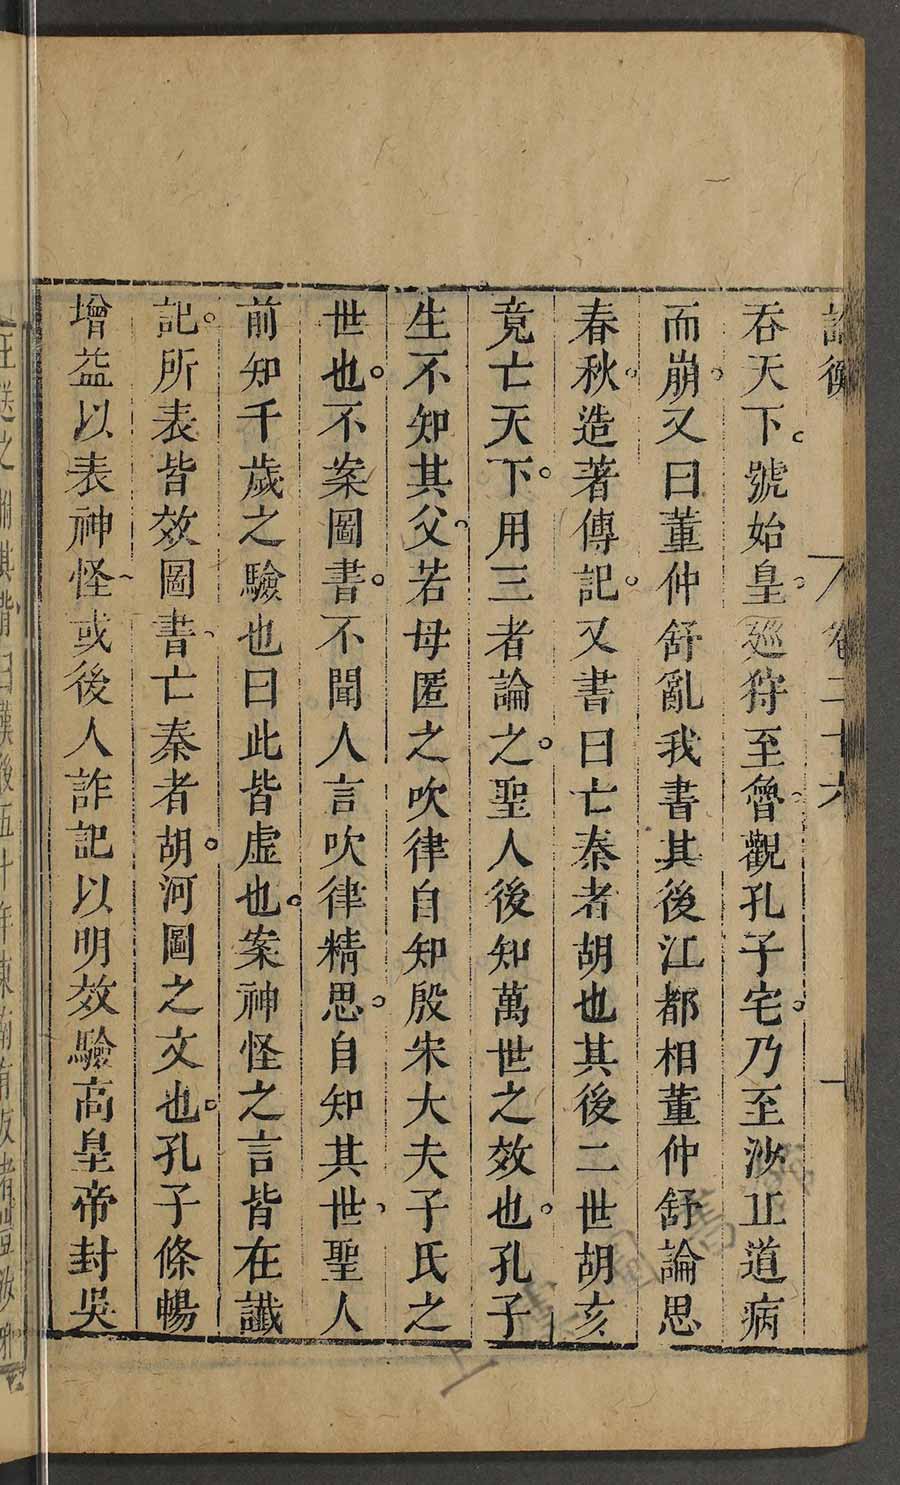 論衡 卷二十六 一
吞天下。號始皇。巡狩至魯觀孔子宅。乃至沙丘道病
而崩。又曰董仲舒亂我書其後江都相董仲舒論思
春秋。造著傳記。又書曰亡秦者胡也其後二世胡亥
竟亡天下。用三者論之。聖人後知萬世之效也。孔子
生不知其父。若母匿之吹律自知殷宋大夫子氏之
世也。不案圖書。不聞人言吹律精思。自知其世、聖人
前知千歲之驗也曰此皆虛也。案神怪之言皆在讖
記。所表皆效圖書、亡秦者胡。河圖之文也。孔子條暢
增益以表神怪、或後人詐記以明效驗高皇帝封吳
王送之
其背曰漢後五十年東南有反者豈汝